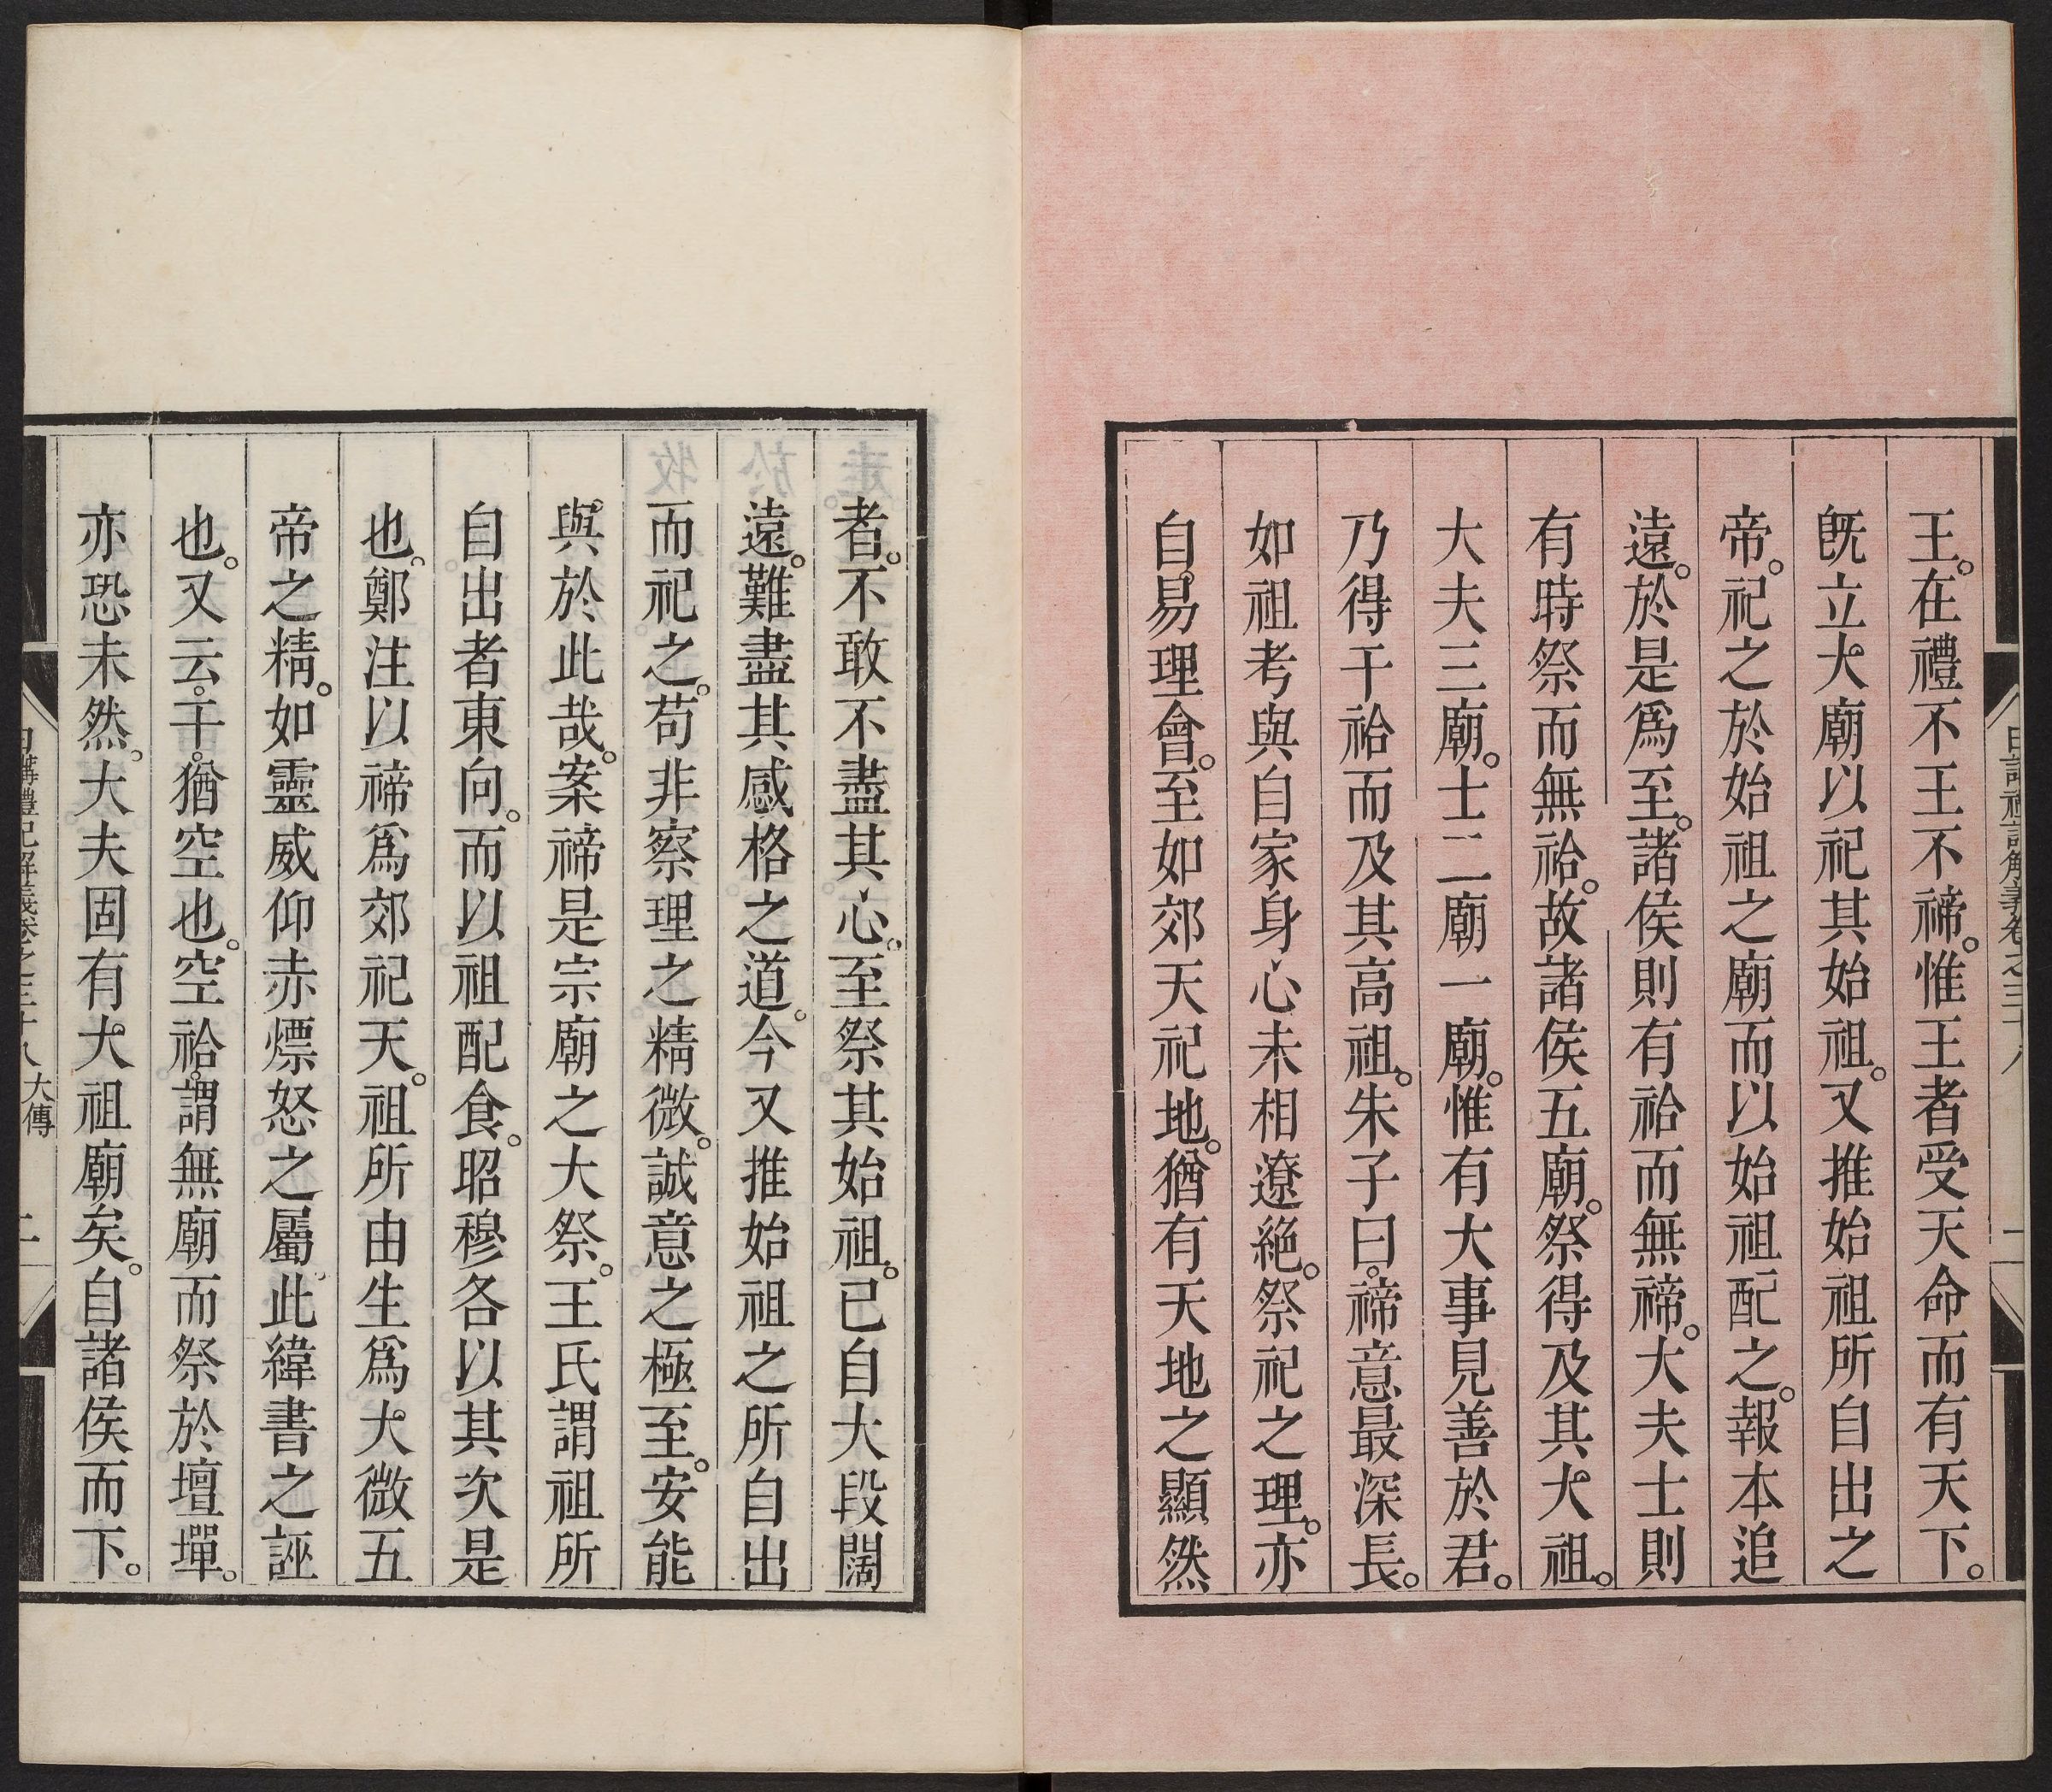 王。在禮不王不禘。惟王者受天命而有天下。
旣立大廟以祀其始祖。又推始祖所自出之
帝。祀之於始祖之廟而以始祖配之。報本追
遠。於是爲至。諸侯則有祫而無禘。大夫士則
有時祭而無祫。故諸侯五廟。祭得及其大祖。
大夫三廟。士二廟一廟。惟有大事見善於君。
乃得干祫而及其高祖。朱子曰。禘意最深長。
如祖考與自家身心未相遼絕。祭祀之理。亦
自易理會。至如郊天祀地。猶有天地之顯然
者。不敢不盡其心。至祭其始祖。已自大段闊
遠。難盡其感格之道。今又推始祖之所自出
而祀之。苟非察理之精微。誠意之極至。安能
與於此哉。案禘是宗廟之大祭。王氏謂祖所
自出者東向。而以祖配食。昭穆各以其次是
也。鄭注以禘爲郊祀天。祖所由生爲大微五
帝之精。如靈威仰赤熛怒之屬。此緯書之誣
也。又云。干。猶空也。空祫。謂無廟而祭於壇墠。
亦恐未然。大夫固有大祖廟矣。自諸侯而下。
日講禮記解義卷之三十八 大傳 二